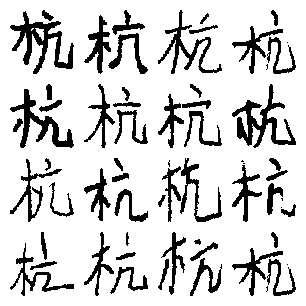 杭杭杭杭
杭杭杭杭
杭杭杭杭
杭杭杭杭